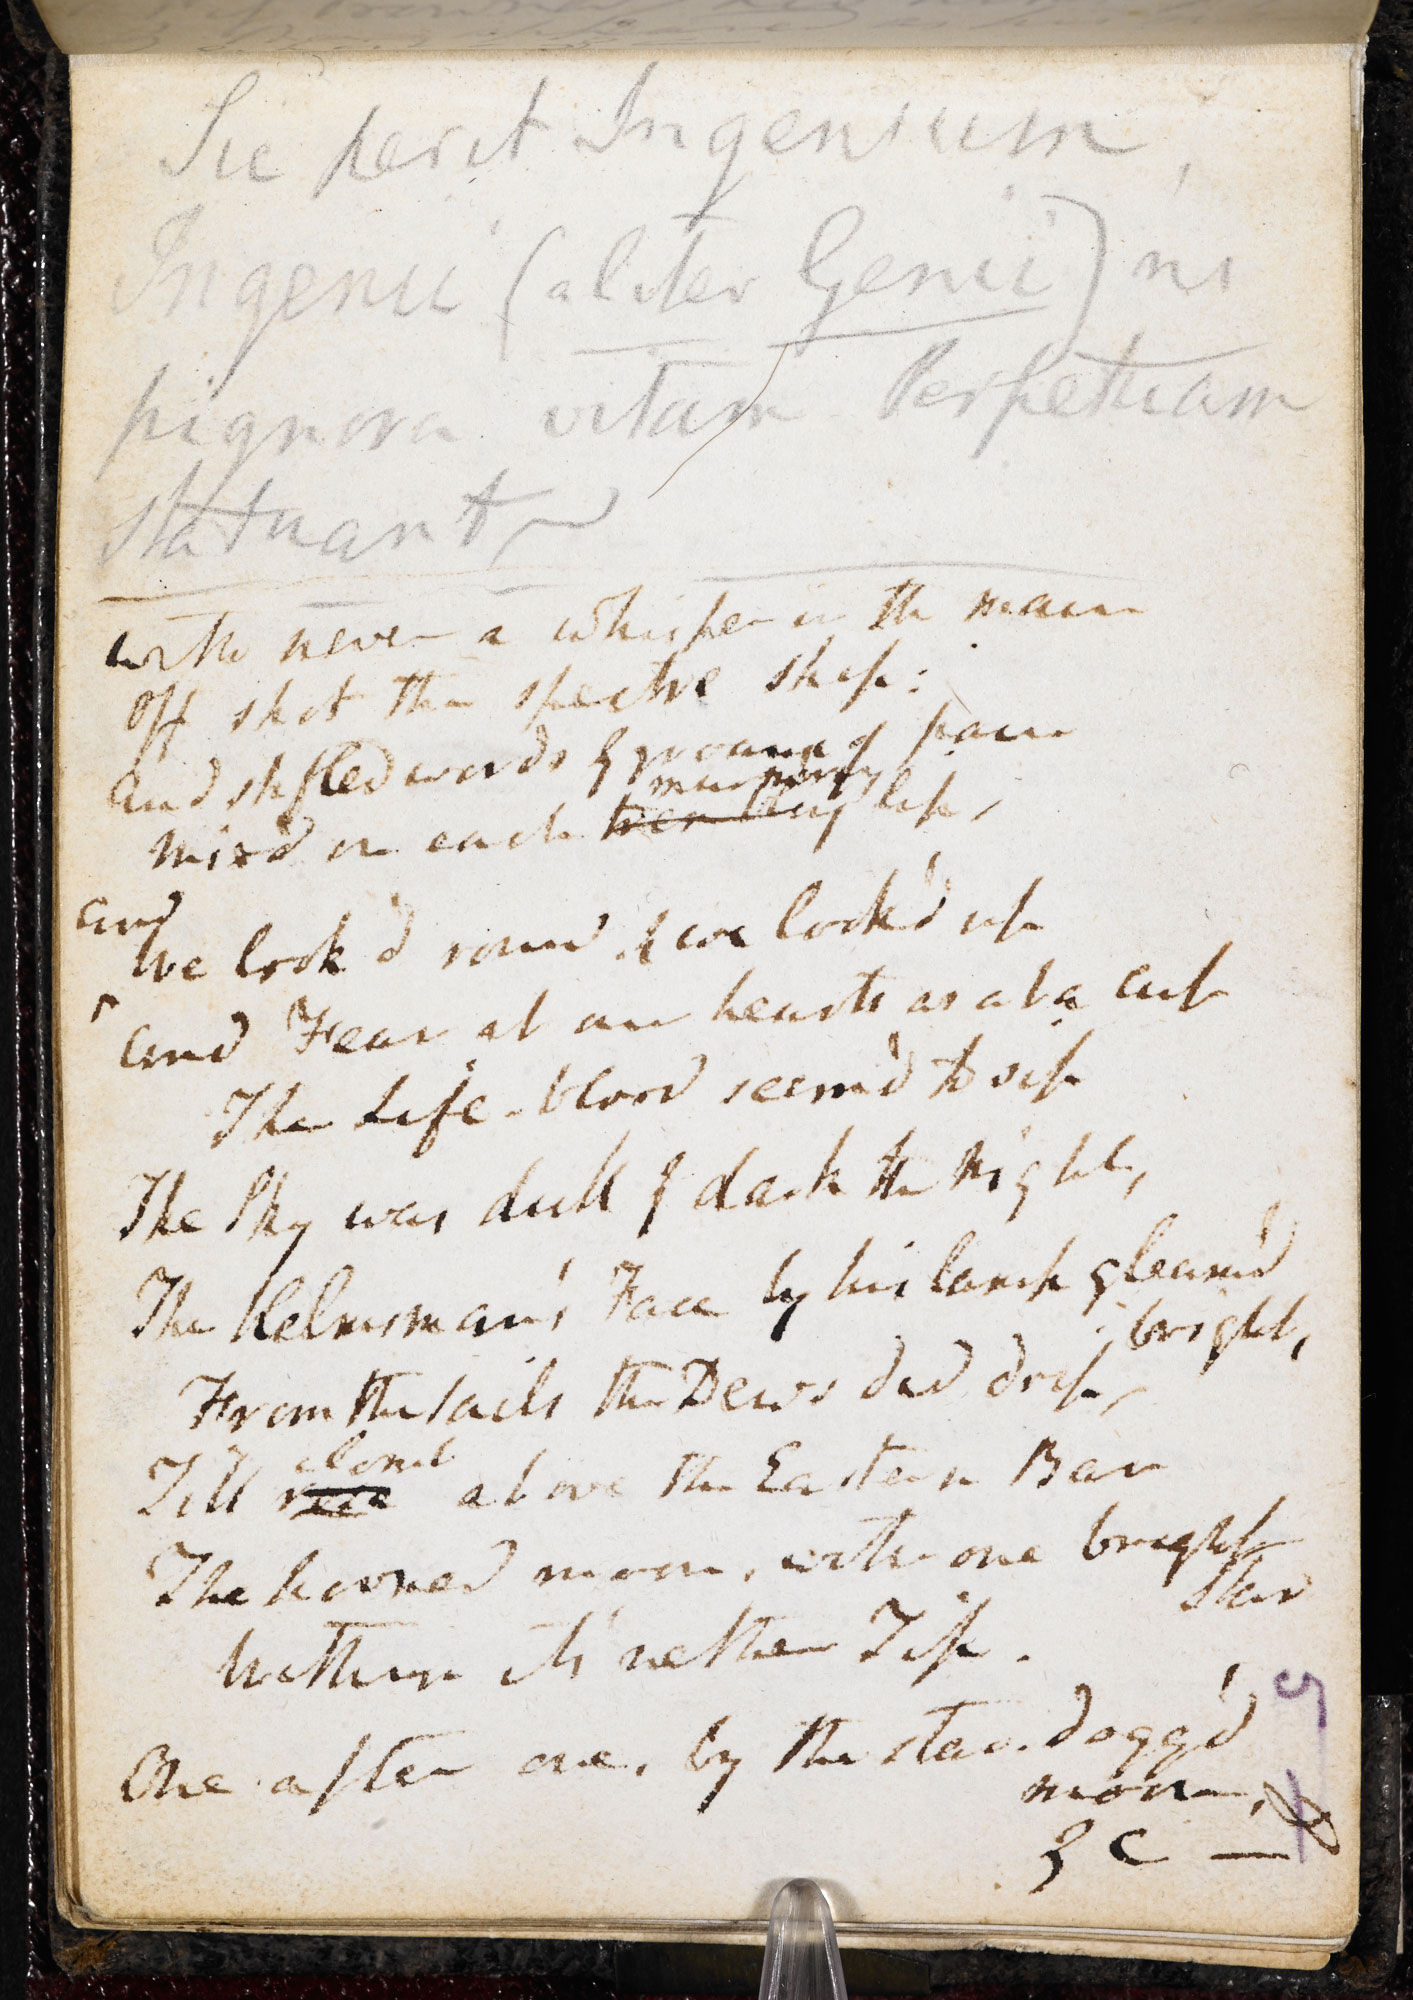 Sic perit Ingenium,
Ingenii (aliter Genii) ni
pignora vitam Perpetuam
statuant
with never a whisper in the main
Off shot the spectre ship:
And stifled words & groans of pain
murmuring
Mix'd on each trembling lip,
And
We look'd round & we look'd up
And Fear at our hearts as at a Cup
The Life-blood seem'd to sip
The Sky was dull & dark the Night,
The Helmsman's Face by his lamp gleam'd
bright,
From the sails the Dews did drip,
clomb
Till rose above the Eastern Bar
The horned moon, with one bright
Star
Within its nether Tip.
One after one, by the star-dogg'd
moon,
&c —